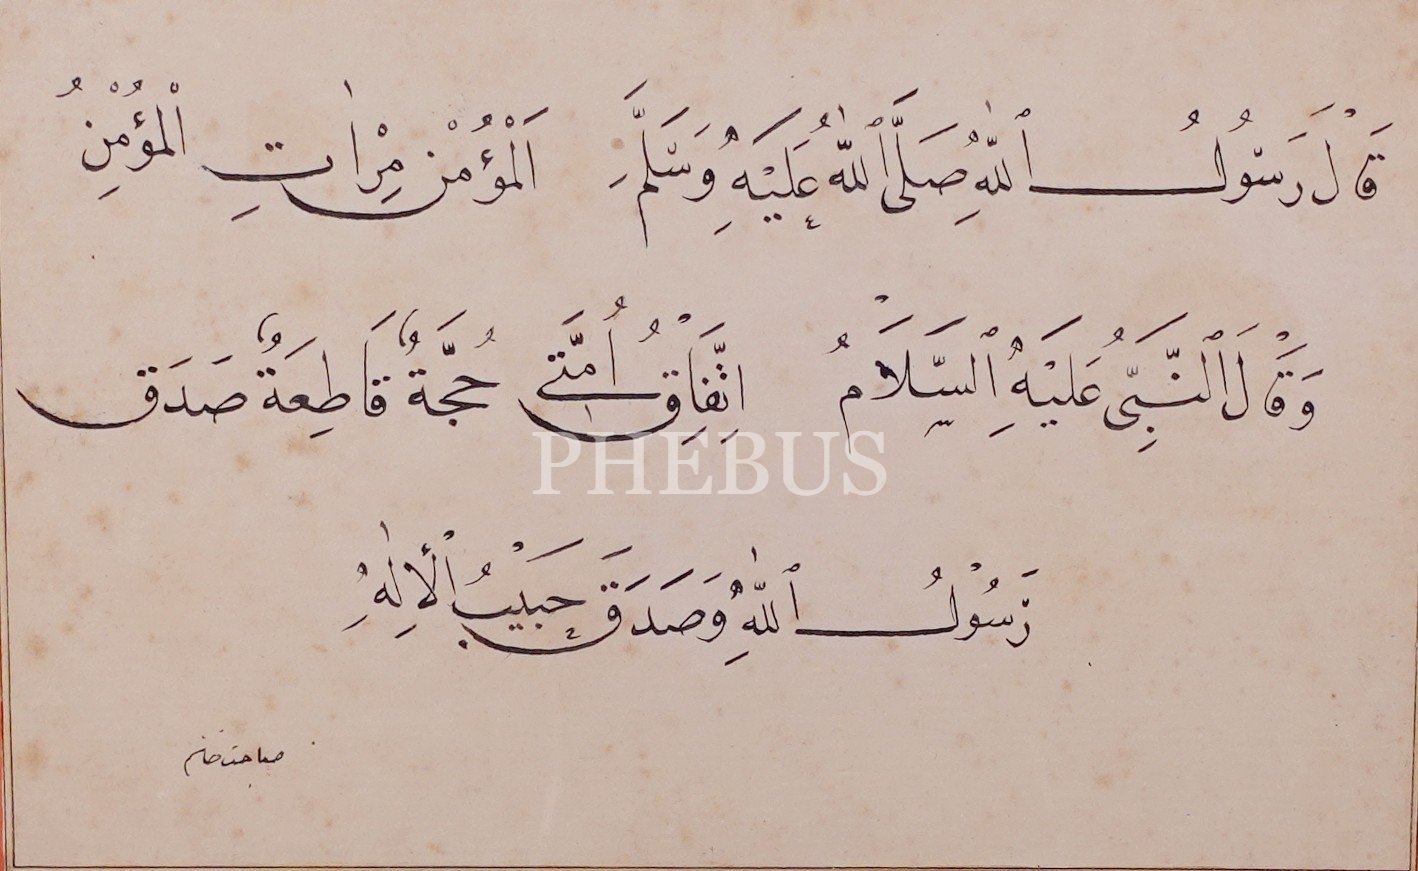 قَالَ رَسُولُ ٱللّٰهِ صَلَّى ٱللّٰهُ عَلَيْهِ وَسَلَّمَ اَلْمُؤْمِنُ مِرْاٰتِ الْمُؤْمِنِ
وَقَالَ ٱلنَّبِىُّ عَلَيْهِ ٱلسَّلَامُ اِتِّفَاقُ اُمَّتِى حُجَّةٌ قَاطِعَةٌ صَدَقَ
رَسُولُ ٱللّٰهِ وَصَدَقَ حَبِيْبُ الْأِلٰهِ
صباحت خانم
PHEBUS